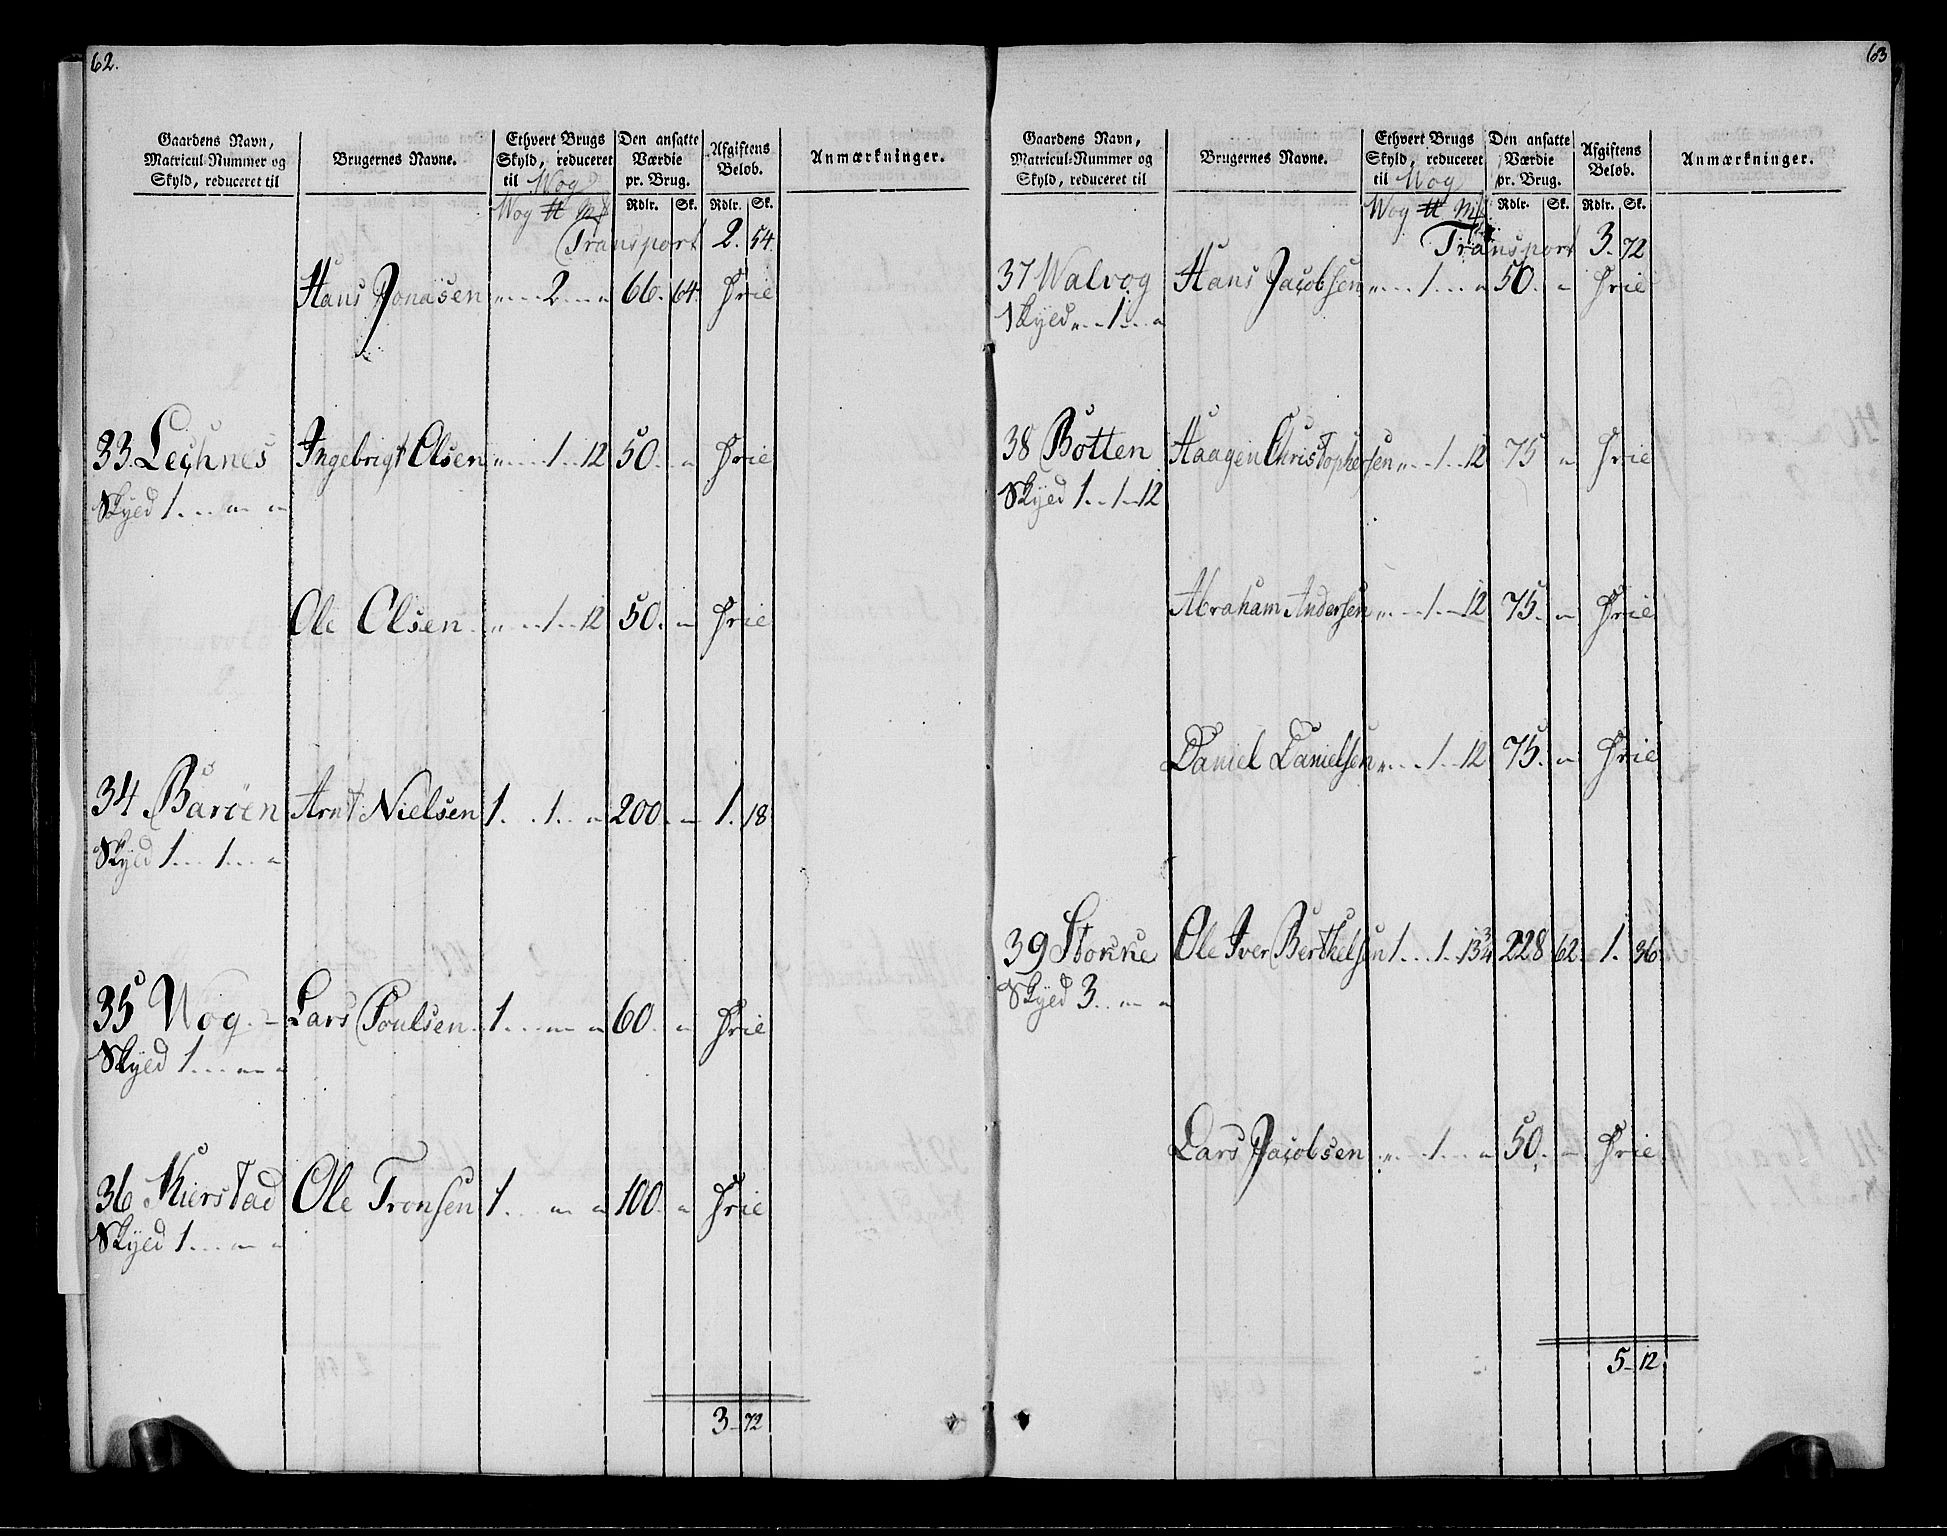 62.
Gaardens Navn, Matricul-Nummer og Skyld, reduceret til | Brugernes Navne. | Ethvert Brugs Skyld, reduceret til Wog | Den ansatte Værdie pr. Brug. | Afgiftens Beløb. | Anmærkninger.
Wog ℔ mk | Rdlr. | Sk. | Rdlr. | Sk.
Transport 2. 54.
Hans Jonasen „ . . 2 . . „ 66. 64. Frie
33 Lechnes Ingebrigt Olsen „ . . 1 . . 12 50. „ Frie
Skyld 1 . . „ „
Ole Olsen „ . . 1 . . 12 50. „ Frie
34 Barøen Arnt Nielsen 1. . 1. . „ 200. „ 1. 18
Skyld 1 . . 1 . . „
35 Wog. Lars Poulsen 1 . . „ „ 60. „ Frie
Skyld 1 . . „ „
36 Kierstad Ole Tronsen 1 . . „ „ 100. „ Frie
Skyld 1 . . „ „
3 – 72
63
Gaardens Navn, Matricul-Nummer og Skyld, reduceret til | Brugernes Navne. | Ethvert Brugs Skyld, reduceret til Wog | Den ansatte Værdie pr. Brug. | Afgiftens Beløb. | Anmærkninger.
Wog ℔ mk | Rdlr. | Sk. | Rdlr. | Sk.
Transport 3. 72
37 Walvog Hans Jacobsen „ . . 1 . . „ 50. „ Frie
Skyld „ . . 1 . . „
38 Botten Haagen Christophersen „ . . 1 . . 12 75 „ Frie
Skyld 1 . . 1 – 12
Abraham Andersen „ . . 1 . . 12 75. „ Frie
Daniel Danielsen „ . . 1 . . 12 75. „ Frie
39 Stokke Ole Iver Berthelsen 1. . . 1. 13¾ 228 62. 1. 36.
Skyld 3 . . „ „
Lars Jacobsen „ . . 1 . . „ 50. „ Frie
5 – 12